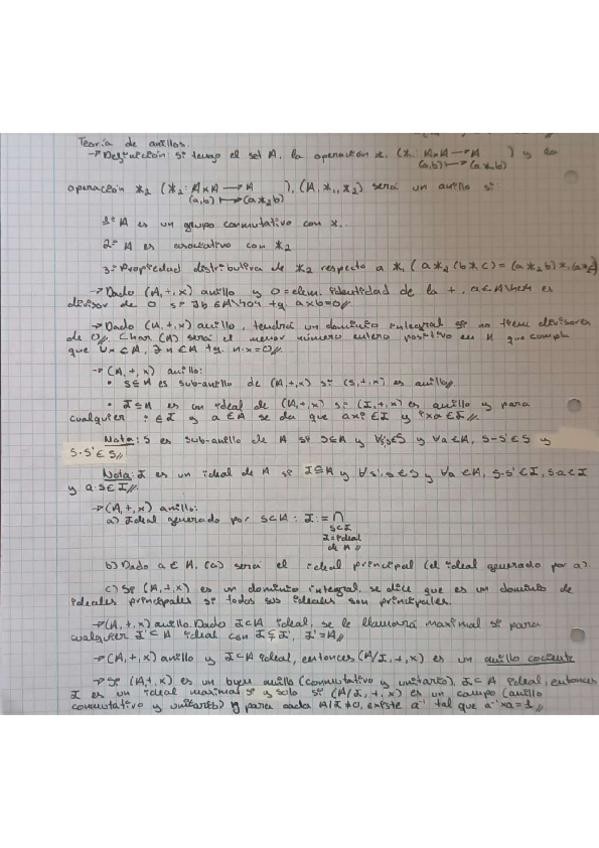 Teoría de anillos.
→ Definición: Si tengo el set A, la operación *₁ (*₁: A×A → A (a,b) ↦ (a*₁b)) y la
operación *₂ (*₂: A×A → A (a,b) ↦ (a*₂b)), (A, *₁, *₂) será un anillo si:
1º A es un grupo conmutativo con *₁.
2º A es asociativo con *₂
3º Propiedad distributiva de *₂ respecto a *₁ (a*₂(b*₁c) = (a*₂b)*₁(a*₂c)
→ Dado (A,+,x) anillo y 0 = elem. identidad de la +, a∈A\{0} es
divisor de 0 si ∃b∈A\{0} tq axb=0//
→ Dado (A,+,x) anillo, tendrá un dominio integral si no tiene divisores
de 0//. Char(A) será el menor número entero positivo en
que ∀x∈A, ∃n∈A tq. n·x=0//.
→ (A,+,x) anillo:
• S⊆A es sub-anillo de (A,+,x) si (S,+,x) es anillo//.
• I⊆A es un ideal de (A,+,x) si (I,+,x) es anillo y para
cualquier i∈I y a∈A se da que axi∈I y ixa∈I//.
Nota: S es sub-anillo de A si S⊆A y ∀s,s'∈S y ∀a∈A, s-s'∈S y
s·s'∈S//
Nota: I es un ideal de A si I⊆A y ∀s',s∈S y ∀a∈A, s-s'∈I, s·a∈I
y a·s∈I//.
→ (A,+,x) anillo:
a) Ideal generado por S⊂A: I := ∩
S⊂I
I=ideal
de A //
b) Dado a∈A, (a) será el ideal principal (el ideal generado por a).
c) Si (A,+,x) es un dominio integral, se dice que es un dominio de
ideales principales si todos sus ideales son principales.
→ (A,+,x) anillo. Dado I⊂A ideal, se le llamará maximal si para
cualquier I'⊂A ideal con I⊊I', I'=A//.
→ (A,+,x) anillo y I⊂A ideal, entonces (A/I,+,x) es un anillo cociente
→ Si (A,+,x) es un buen anillo (conmutativo y unitario), I⊂A ideal, entonces
I es un ideal maximal si y solo si (A/I,+,x) es un campo (anillo
conmutativo y unitario) y para cada A/I≠0, existe a⁻¹ tal que a⁻¹xa=1//